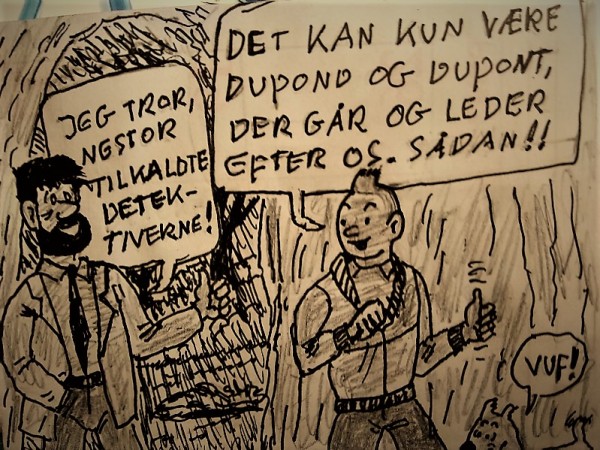 JEG TROR,
NESTOR
TILKALDTE
DETEK-
TIVERNE!
DET KAN KUN VÆRE
DUPOND OG DUPONT,
DER GÅR OG LEDER
EFTER OS. SÅDAN!!
VUF!